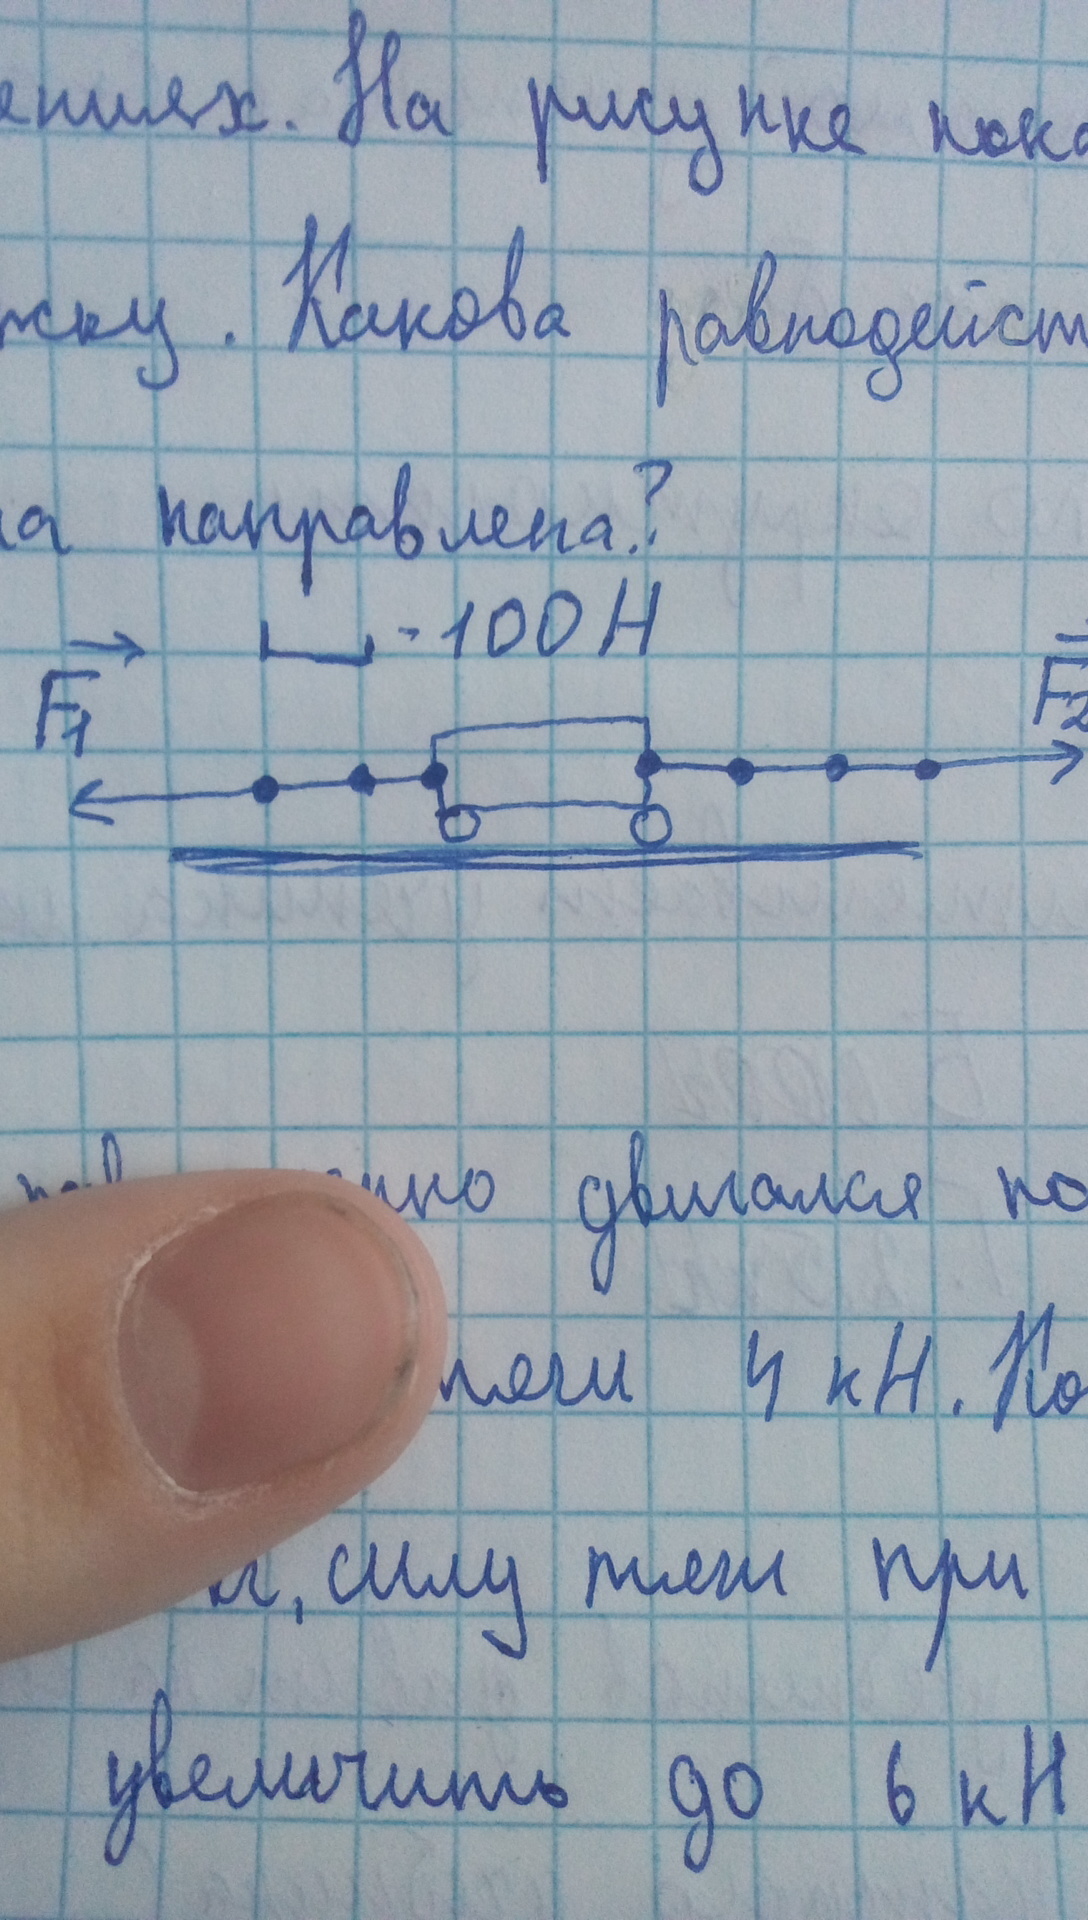 ениях. На рисунке пока
жку. Какова равнодейст
на направлена?
- 100 Н
F1
F2
но двигался по
тяги 4 кН. Ко
силу тяги при
увеличить до 6 кН